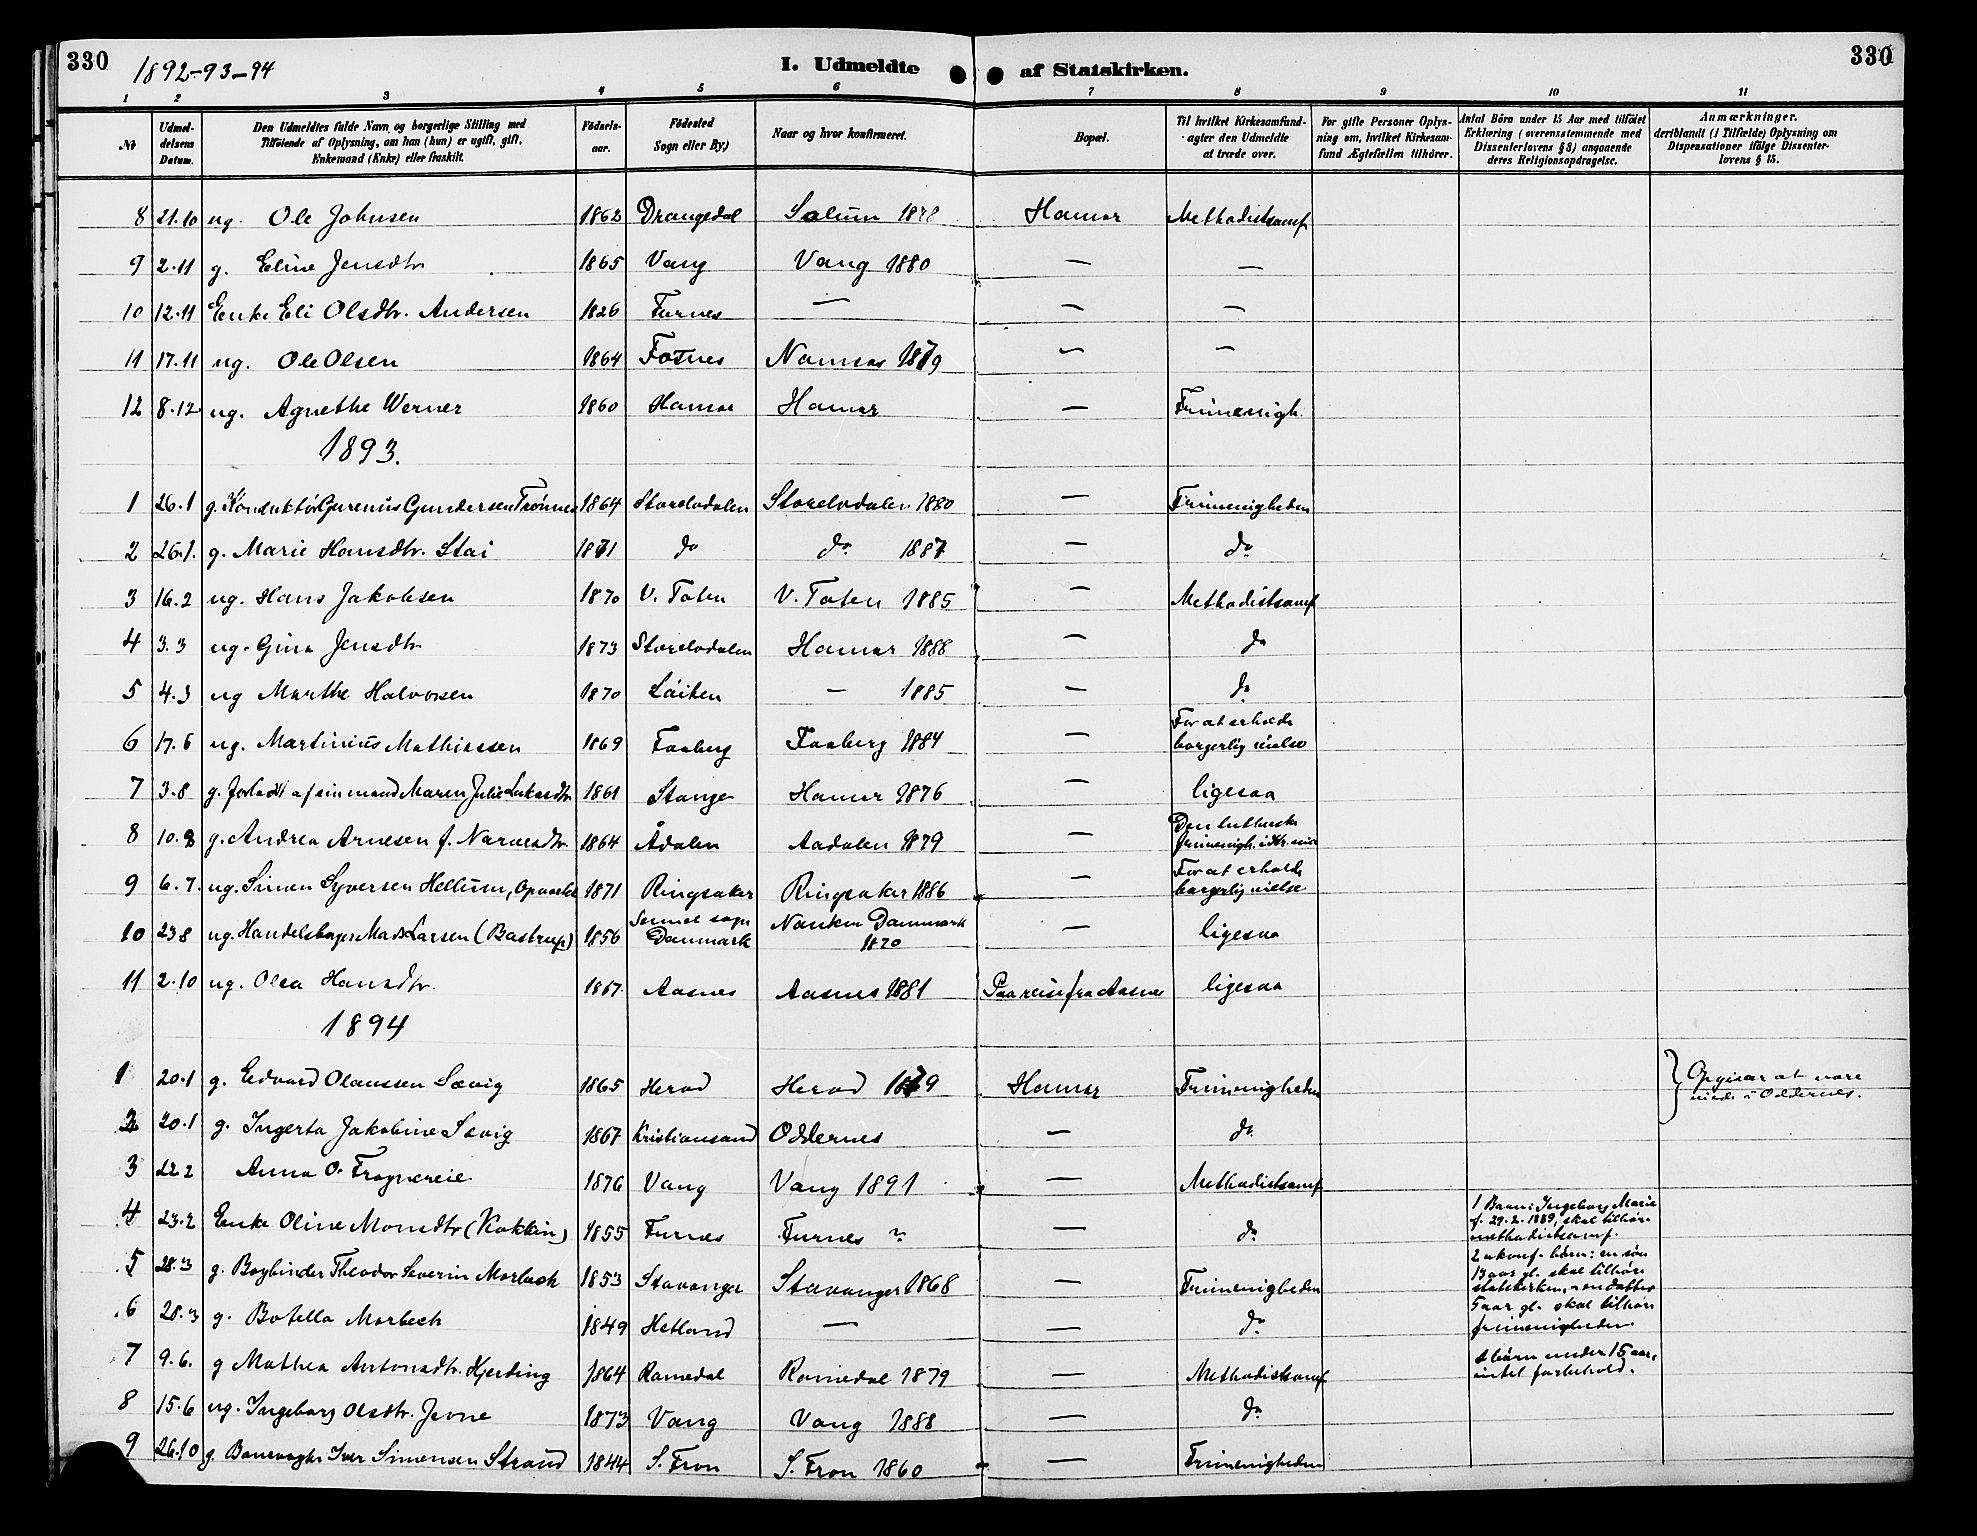 330
1892-93-94
I. Udmeldte af Statskirken.
330
1 2 3 4 5 6 7 8 9 10 11
№
Udmel-
delsens
Datum.
Den Udmeldtes fulde Navn og borgerlige Stilling med
Tilføiende af Oplysning, om han (hun) er ugift, gift,
Enkemand (Enke) eller fraskilt.
Fødsels-
aar.
Fødested
Sogn eller By)
Naar og hvor konfirmeret.
Bopæl.
Til hvilket Kirkesamfund
agter den Udmeldte
at træde over.
For gifte Personer Oplys-
ning om, hvilket Kirkesam-
fund Ægtefællen tilhører.
Antal Børn under 15 Aar med tilføiet
Erklæring (overensstemmende med
Dissenterlovens § 8) angaaende
deres Religionsopdragelse.
Anmærkninger,
deriblandt (i Tilfælde) Oplysning om
Dispensationer ifølge Dissenter-
lovens § 15.
8 21.10 ug. Ole Johnsen 1862 Drangedal Solum 1878 Hamar Methodistsamf
9 2.11 g. Eline Jensdtr 1865 Vang Vang 1880 — —
10 12.11 Enke Eli Olsdtr. Andersen 1826 Furnes — — —
11 17.11 ug. Ole Olsen 1864 Fosnes Namsos 1879 — —
12 8.12 ug. Agnethe Werner 1860 Hamar Hamar — Frimenigh.
1893.
1 26.1 g. Konduktør Gurenius Gundersen Trønnes 1864 Storelvdalen Storelvdalen 1880 — Frimenigheden
2 26.1. g. Marie Hansdtr. Stai 1871 do do 1887 — do
3 16.2 ug. Hans Jakobsen 1870 V. Toten V. Toten 1885 — Methodistsamf
4 3.3 ug. Gina Jensdtr 1873 Storelvdalen Hamar 1888 — do
5 4.3 ug Marthe Halvorsen 1870 Løiten — 1885 — do
6 17.6 ug. Martinius Mathiassen 1869 Faaberg Faaberg 1884 — For at erholde
borgerlig vielse
7 3.8 g. forladt af sin mand Maren Julie Lukasdtr 1861 Stange Hamar 1876 — ligesaa
8 10.8 g. Andrea Arnesen f. Narvesdtr. 1864 Ådalen Aadalen 1879 — Den lutherske
frimenigh. i Kr.ania
9 6.7. ug. Simen Syversen Hellum, Opvarter 1871 Ringsaker Ringsaker 1886 — For at erholde
borgerlig vielse
10 23.8 ug. Handelsborger Mads Larsen (Bastrup) 1856 sogn
Danmark Danmark
1870 — ligesaa
11 2.10 ug. Olea Hansdtr. 1867 Aasnes Aasnes 1881 Paa reise fra Aasnes ligesaa
1894
1 20.1 g. Edvard Olaussen Sævig 1865 Herad Herad 1879 Hamar Frimenigheden Opgiver at være
viede i Oddernes.
2 20.1 g. Ingerta Jakobine Sævig 1867 Kristiansand Oddernes — do
3 22.2 Anna O. Frognereie 1876 Vang Vang 1891 — Methodistsamf
4 23.2 Enke Oline Monsdtr (Kokkin) 1855 Furnes Furnes ? — do 1 Barn: Ingeborg Marie
f. 29.2.1889, skal tilhøre
methodistsamf.
5 28.3 g. Bogbinder Theodor Severin Morbech 1853 Stavanger Stavanger 1868 Frimenigheden 2 ukonf. børn: en søn
13 aar gl. skal tilhøre
statskirken, en datter
5 aar gl. skal tilhøre
frimenigheden.
6 28.3 g. Botella Morbech 1849 Hetland — — do
7 9.6. g Mathea Antonsdtr. Hjerding 1864 Romedal Romedal 1879 — Methodistsamf børn under 15 aar,
intet forbehold.
8 15.6 ug. Ingeborg Olsdtr. Jevne 1873 Vang Vang 1888 — do
9 26.10 g. Banevogter Iver Simensen Strand 1844 S. Fron S. Fron 1860 — Frimenigheden